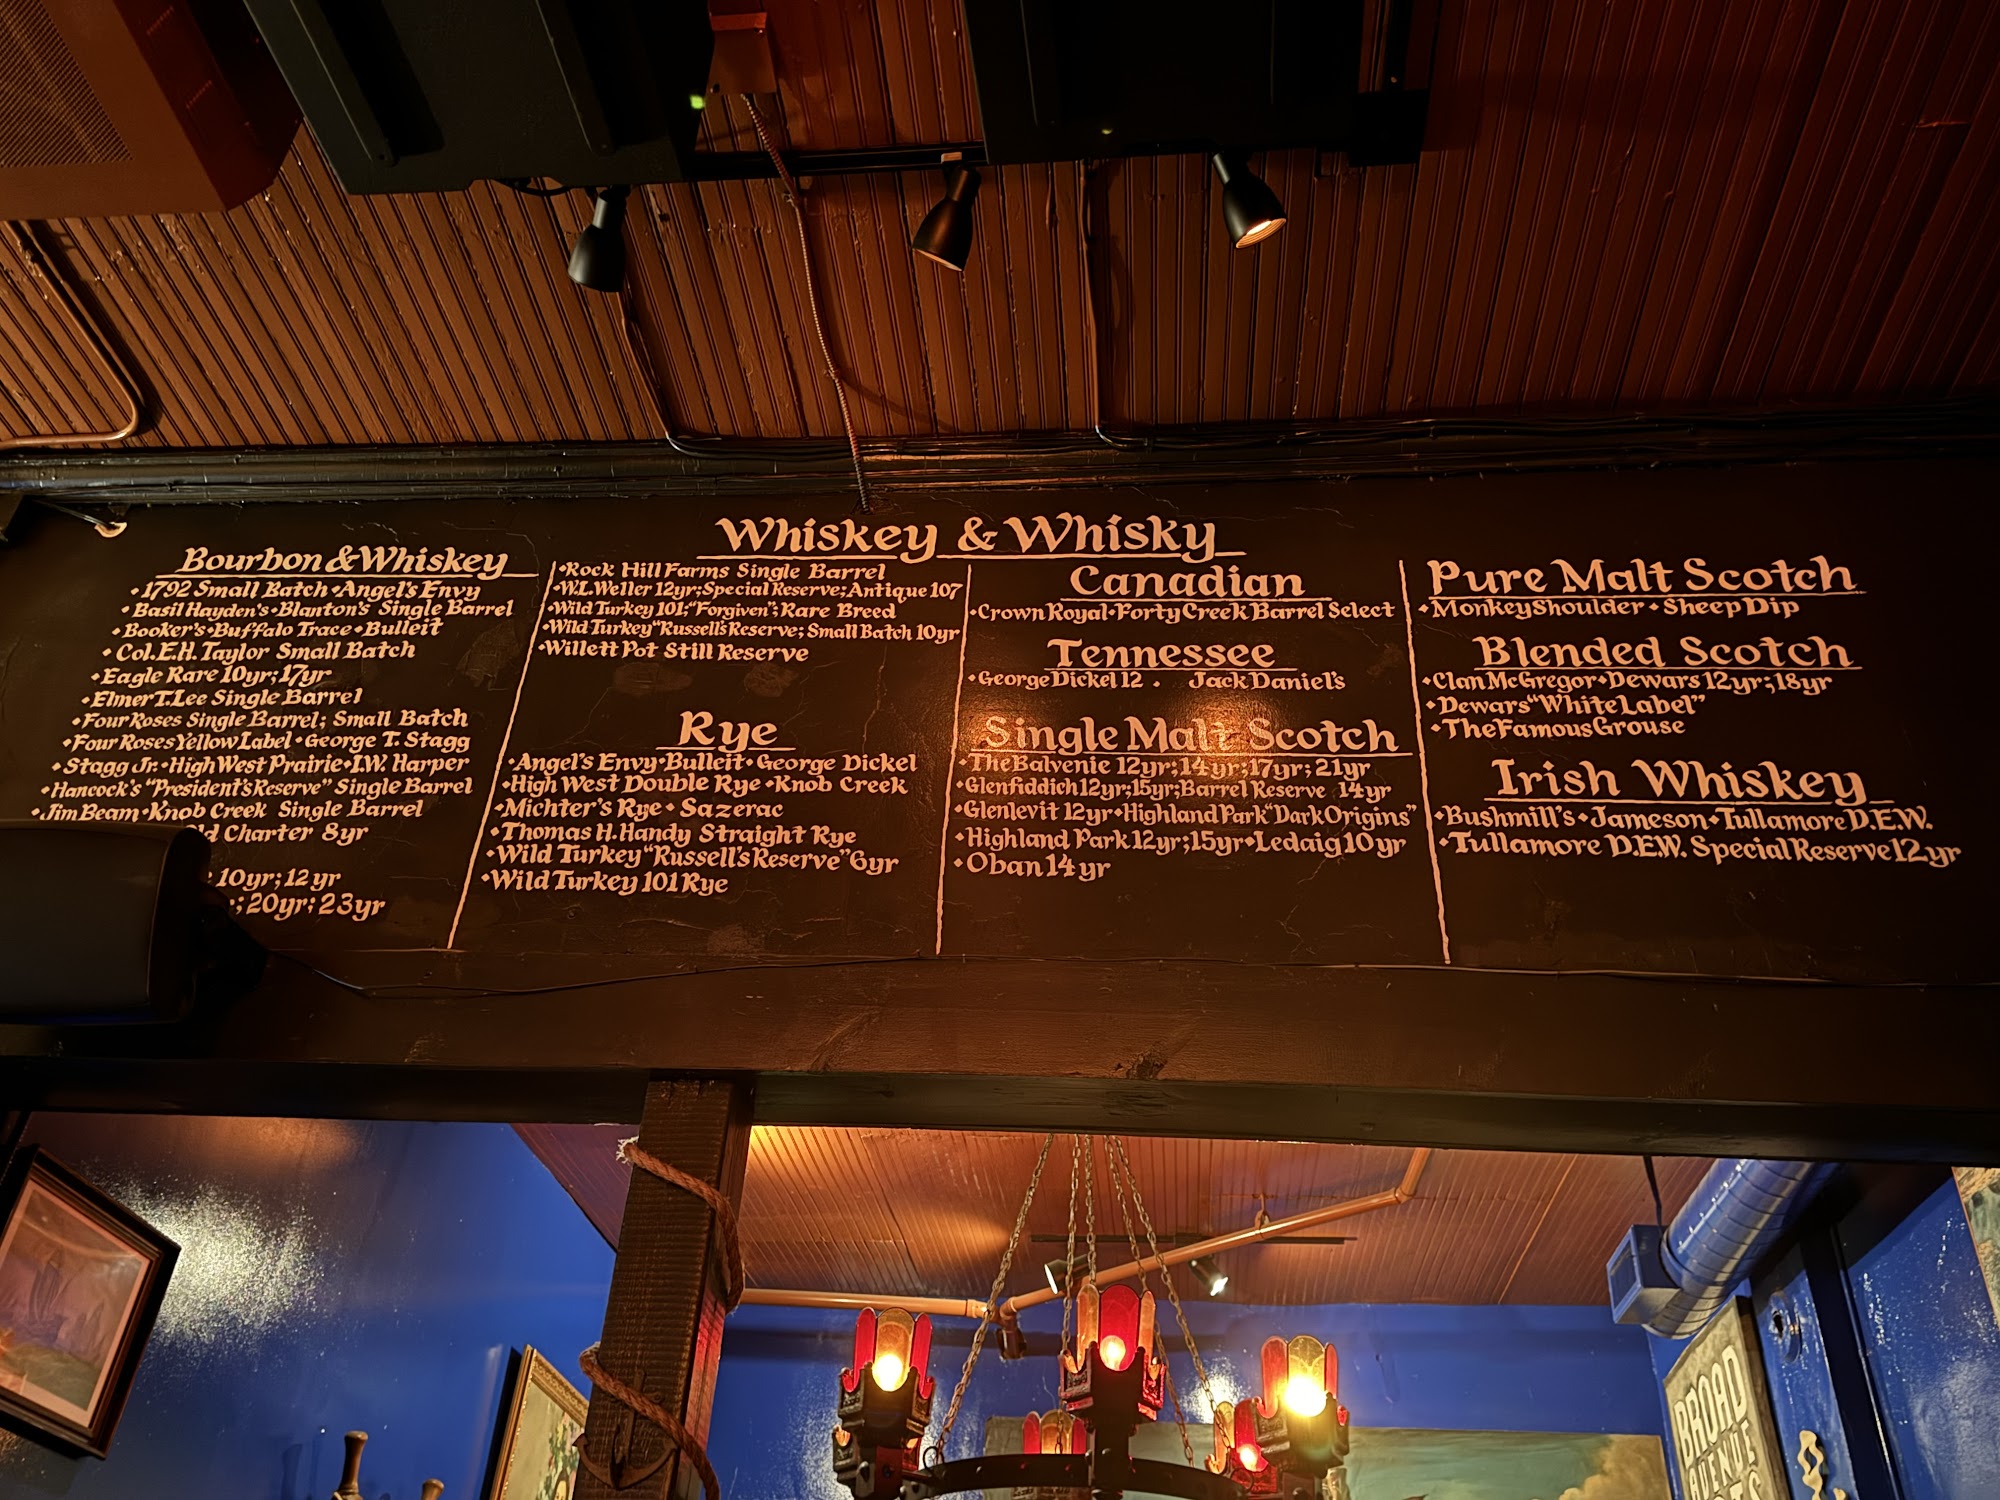 Whiskey & Whisky
Bourbon & Whiskey
•1792 Small Batch •Angel's Envy
•Basil Hayden's •Blanton's Single Barrel
•Booker's •Buffalo Trace •Bulleit
•Col. E.H. Taylor Small Batch
•Eagle Rare 10yr; 17yr
•Elmer T. Lee Single Barrel
•Four Roses Single Barrel; Small Batch
•Four Roses Yellow Label •George T. Stagg
•Stagg Jr. •High West Prairie •I.W. Harper
•Hancock's "President's Reserve" Single Barrel
•Jim Beam •Knob Creek Single Barrel
Charter 8yr
10yr; 12yr
; 20yr; 23yr
•Rock Hill Farms Single Barrel
•W.L. Weller 12yr; Special Reserve; Antique 107
•Wild Turkey 101; "Forgiven"; Rare Breed
•Wild Turkey "Russell's Reserve; Small Batch 10yr
•Willett Pot Still Reserve
Rye
•Angel's Envy •Bulleit •George Dickel
•High West Double Rye •Knob Creek
•Michter's Rye •Sazerac
•Thomas H. Handy Straight Rye
•Wild Turkey "Russell's Reserve" 6yr
•Wild Turkey 101 Rye
Canadian
•Crown Royal •Forty Creek Barrel Select
Tennessee
•George Dickel 12 . Jack Daniel's
Single Malt Scotch
•The Balvenie 12yr; 14yr; 17yr; 21yr
•Glenfiddich 12yr; 15yr; Barrel Reserve 14yr
•Glenlevit 12yr •Highland Park "Dark Origins"
•Highland Park 12yr; 15yr •Ledaig 10yr
•Oban 14yr
Pure Malt Scotch
•Monkey Shoulder •Sheep Dip
Blended Scotch
•Clan McGregor •Dewars 12yr; 18yr
•Dewars "White Label"
•The Famous Grouse
Irish Whiskey
•Bushmill's •Jameson •Tullamore D.E.W.
•Tullamore D.E.W. Special Reserve 12yr
BROAD
AVENUE